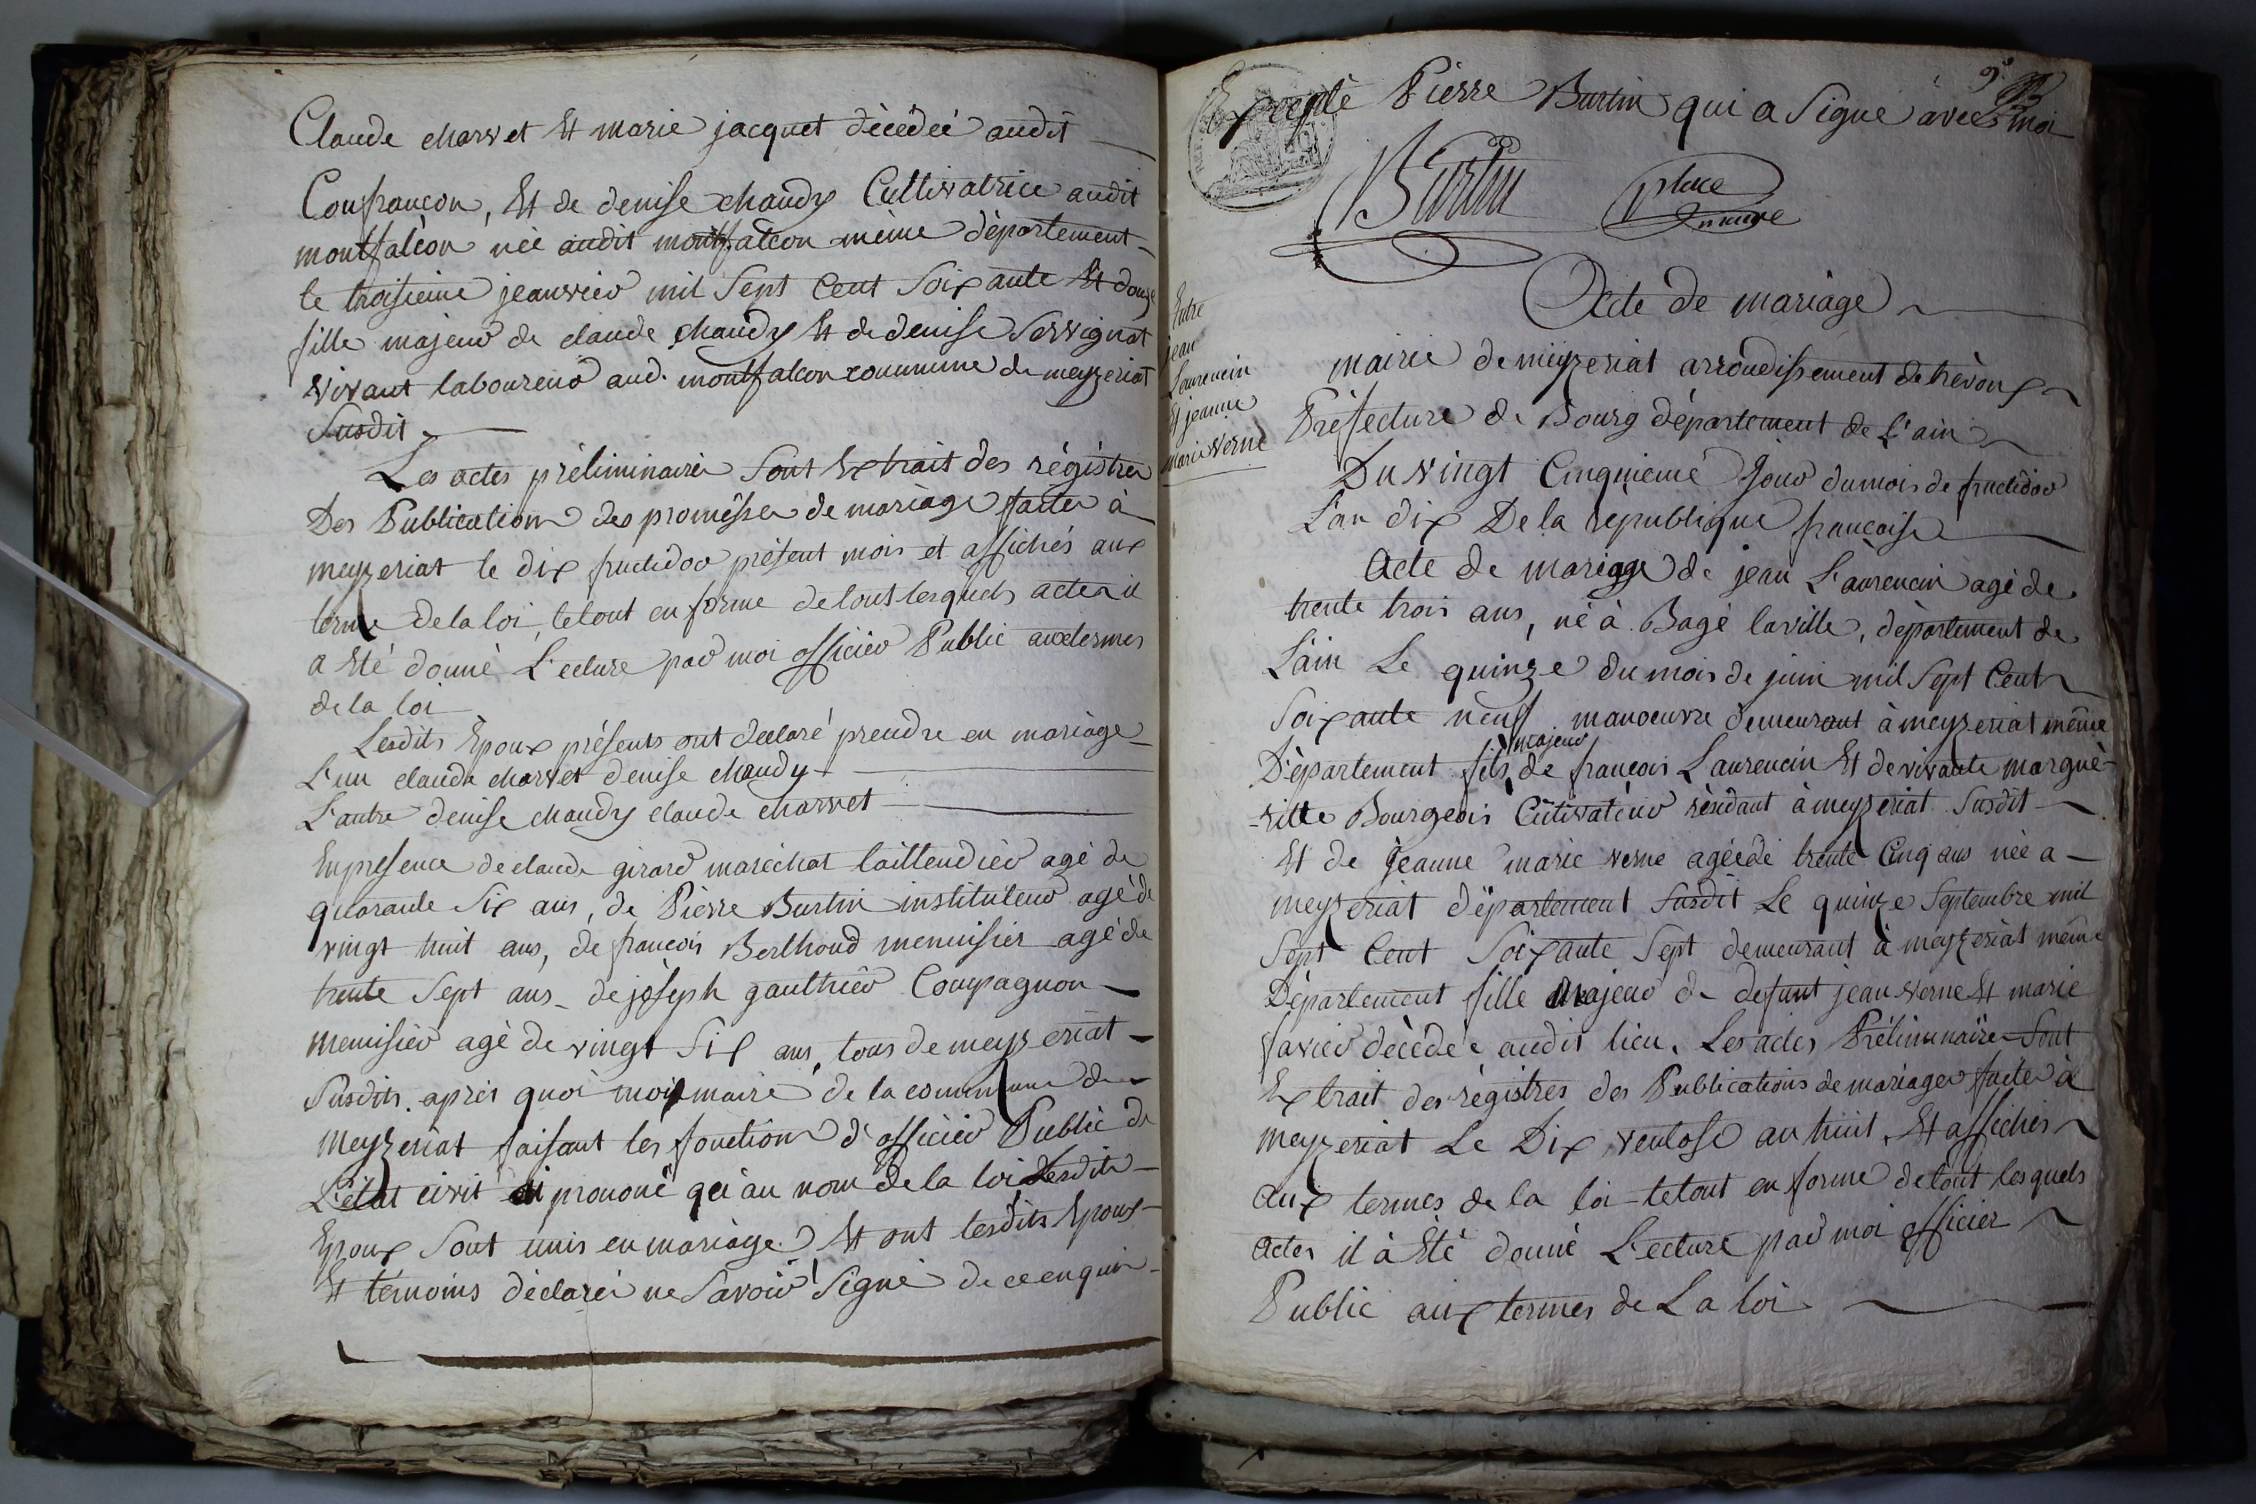 Claude charvet Et marie jacquet dècèdeé audit
Confrancon, Et de denise chaudy Cultivatrice audit
montfalcon née audit montfalcon même dèpartement
le troisieme jeanvier mil Sept Cent Soixante Et douze
fille majeur de claude chaudy Et de denise Servignat
vivant laboureur aud. montfalcon commune de meyzeriat
Susdit
Les actes prèliminaires Sont Extrait des régistres
Des Publication des promesses de mariage faites à
meyzeriat le dix fructidor présent mois et affichés aux
terme de la loi, le tout en forme de tout lesquels actes il
a Eté donné L'ecture par moi officier Public aux termes
de la loi
Lesdits Epoux présents ont declaré prendre en mariàge
L'un claude charvet denise chaudy
L'autre denise chaudy claude charvet
En présence de claude girard maréchal taillendier agé de
quarante Six ans, de Pierre Burtin instituteur agé de
vingt huit ans, de francois Berthoud menuisier agé de
trente Sept ans de joseph gauthier Compagnon
menuisier agè de vingt Six ans, tous de meyzeriat
Susdits. après quoi moi maire de la commune de
meyzeriat faisant les fonctions d'officier Public de
L'état civil ai prononé qu'au nom de la loi Lesdits
Epoux Sont unis en mariàge Et ont lesdits Epoux
Et témoins déclarés ne Savoir Signé de ce enquis
9e
Excepté Pierre Burtin qui a Signé avec moi
Burtin place
maire
Acte de mariàge
Entre
jean
Laurencin
Et jeanne
marie verne
mairie de meyzeriat arrondissement de trèvoux
Préfecture de Bourg département de L'ain
Du vingt Cinquieme Jour du mois de fructidor
L'an dix De la republique francaise
Acte de mariage de jean L'aurencin agé de
trente trois ans, né à Bagé laville, dèpartement de
L'ain Le quinze du mois de juin mil Sept Cent
Soixante neuf manoeuvre demeurant à meyzeriat même
majeur
Dèpartement fils de francois Laurencin Et de vivante margué-
-ritte Bourgeois Cultivateur résidant à meyzeriat Susdit
Et de jeanne marie verne agée de trente Cinq ans née a
meyzeriat département Susdit Le quinze Septembre mil
Sept Cent Soixante Sept demeurant à meyzeriat même
Dèpartement fille Majeur de defunt jean verne Et marie
favier décèdée audit lieu. Les actes Préliminaires Sont
Extrait des régistres des Publications de mariages faites à
meyzeriat Le Dix ventose an huit, Et affichés
aux termes de la loi le tout en forme de tout lesquels
actes il à Eté donné L'ecture par moi officier
Public aux termes de La loi